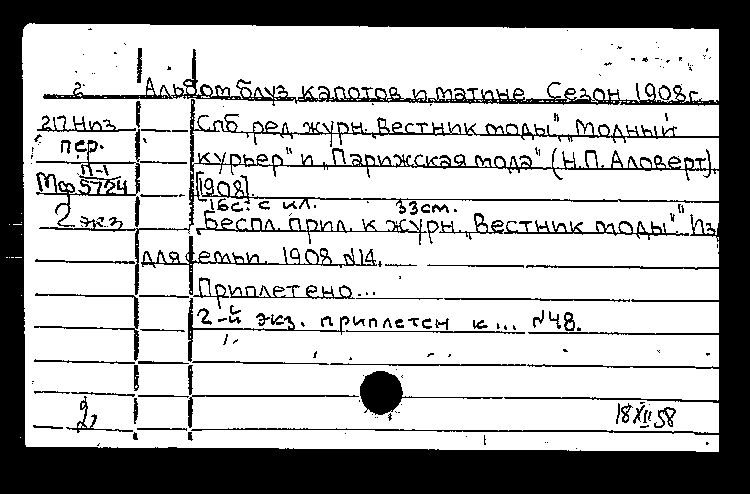 2 Альбом блуз, капотов и матине. Сезон 1908г.
217 Низ Спб, ред. журн. „Вестник моды", „Модный
пер. курьер" и „Парижская мода" (Н.П. Аловерт).
П-1
Мф 5724 [1908].
16с. с ил. 33см.
2 экз Беспл. прил. к журн. „Вестник моды"
для семьи. 1908, №14.
Приплетено...
2-й экз. приплетен к... №48.
2, 18 XII 58